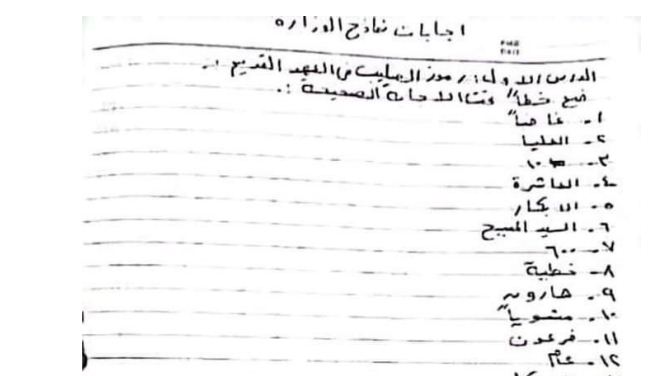 اجابات نماذج الوزارة
الدرس الاول: رموز الصليب فى العهد القديم :-
ضع خطاً تحت الاجابة الصحيحة :-
١- غامضاً
٢- العليا
٣- ١٠
٤- العاشرة
٥- الابكار
٦- السيد المسيح
٧- ٦٠٠
٨- خطية
٩- هارون
١٠- مشوياً
١١- فرعون
١٢- عام